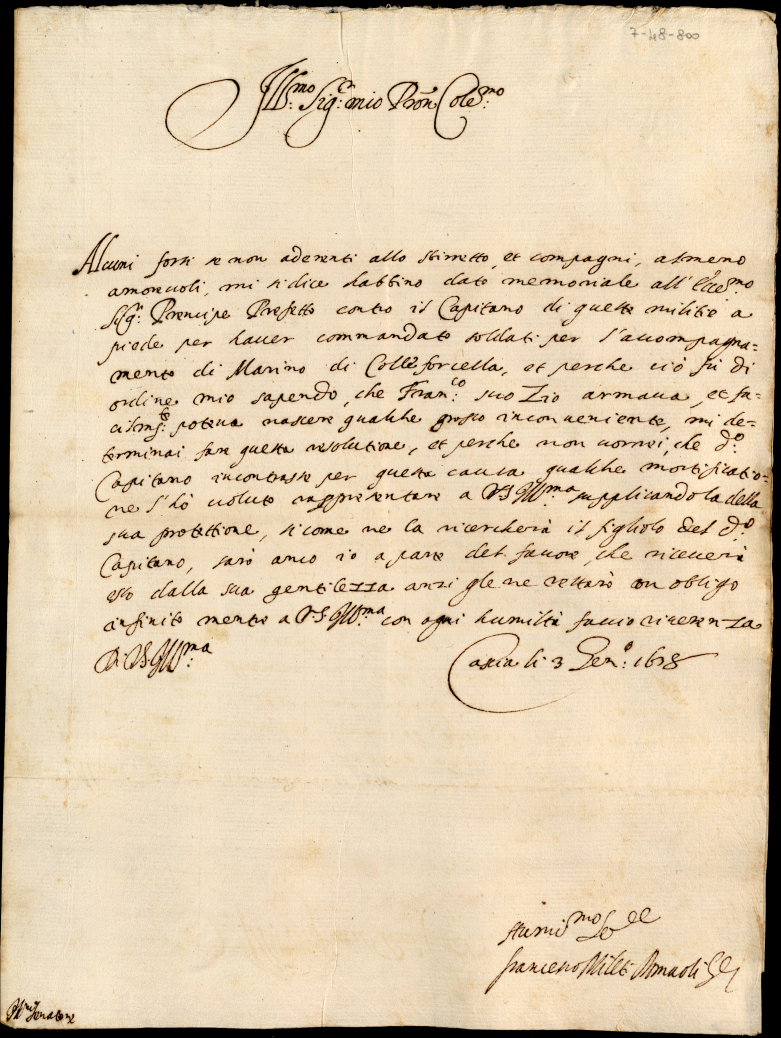 7-48-800
Ill:mo Sig:r mio Pron Cole:mo
Alcuni forsi se non aderenti allo Stirretto, et compagni, almeno
amorevoli, mi si dice habbino dato memoriale all' Ecce:mo
Sig:r Prencipe Prefetto contro il Capitano di queste militie a
piede per haver commandato soldati per l'accompagna=
mento di Marino di Colle forcella, et perche ciò fù di
ordine mio sapendo, che Fran:co suo Zio armava, et fa=
cilm:te poteva nascere qualche grosso inconveniente, mi de=
terminai fare questa resolutione, et perche non vorrei, che d:o
Capitano incontrasse per questa causa qualche mortificatio=
ne l'hò voluto rappresentare a VS Ill:ma supplicandola della
sua protettione, si come ne la ricercherà il figliolo del d:o
Capitano, sarò anco io a parte del favore, che riceverà
esso dalla sua gentilezza anzi gle ne restarò con obligo
infinito mentre a VS Ill:ma con ogni humiltà faccio riverenza
Di VS Ill:ma
Cascia li 3 Gen:o 16
Humi:mo Se
Francesco